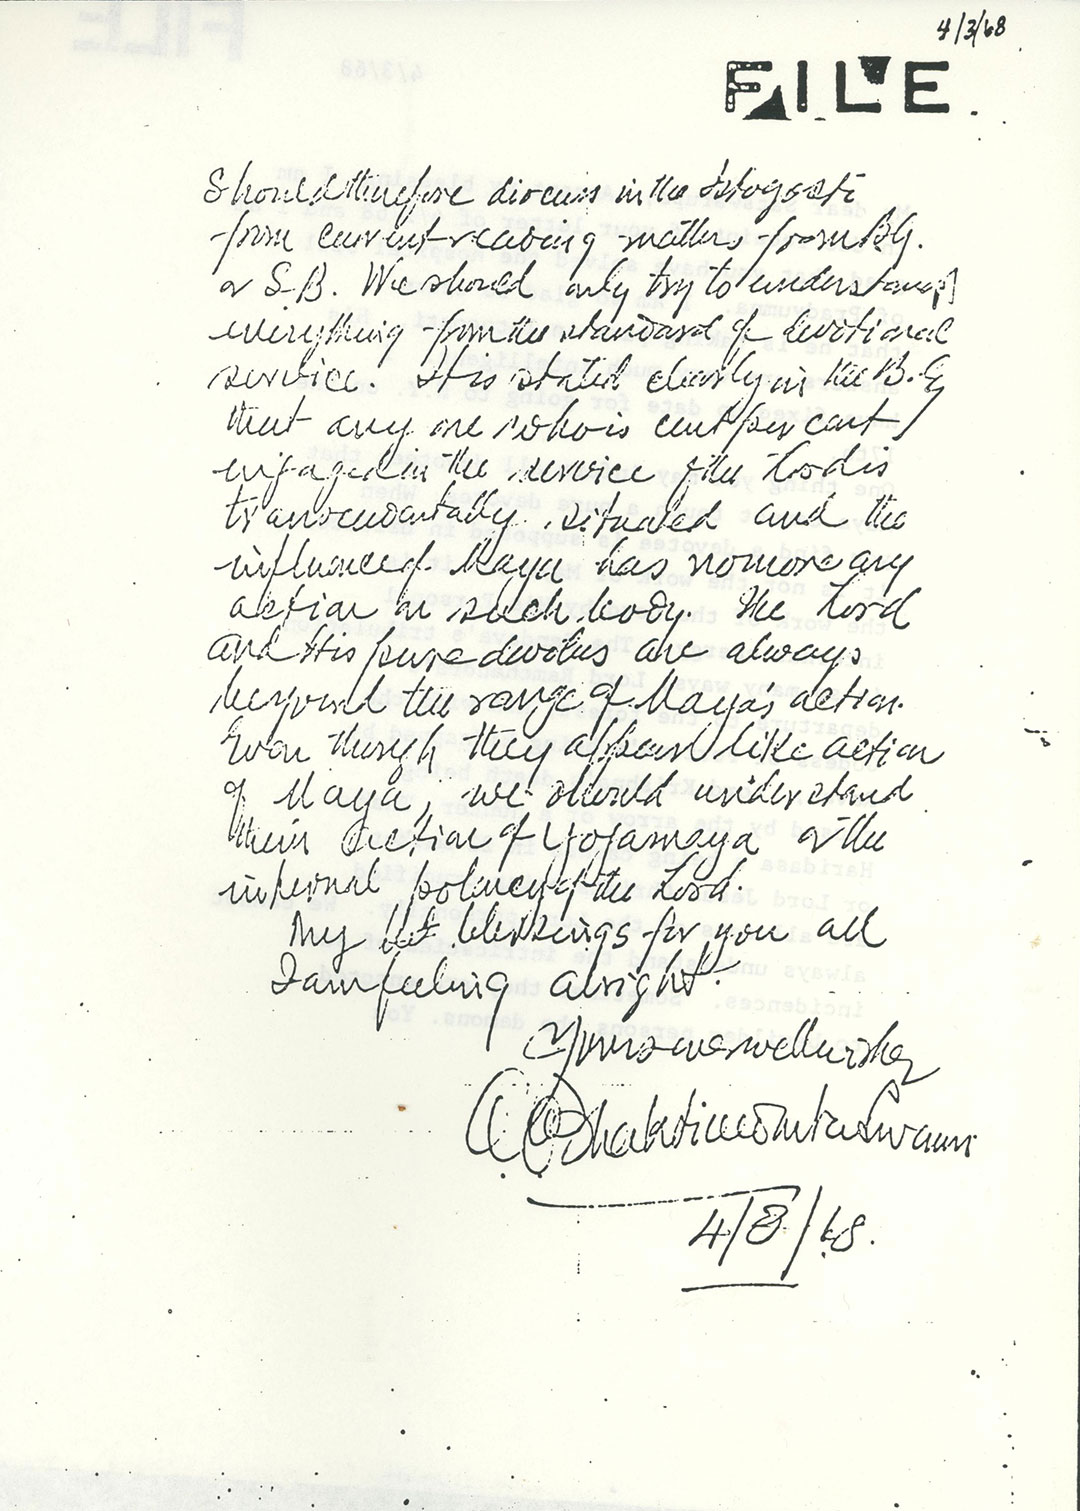 4/3/68
FILE
Should therefore discuss in the Istagosti
from current reading matters from BG.
or S.B. We should only try to understand
everything from the standard of devotional
service. It is stated clearly in the B.G
that any one who is cent per cent
engaged in the service of the Lord is
transcendentally situated and the
influence of Maya has no more any
action on such body. The Lord
and His pure devotees are always
beyond the range of Maya's action.
Even though they appear like action
of Maya, we should understand
their action of Yogamaya or the
internal potency of the Lord.
My blessings for you all
I am feeling alright.
Yours ever well wisher
A.C. Bhaktivedanta Swami
4/3/68.